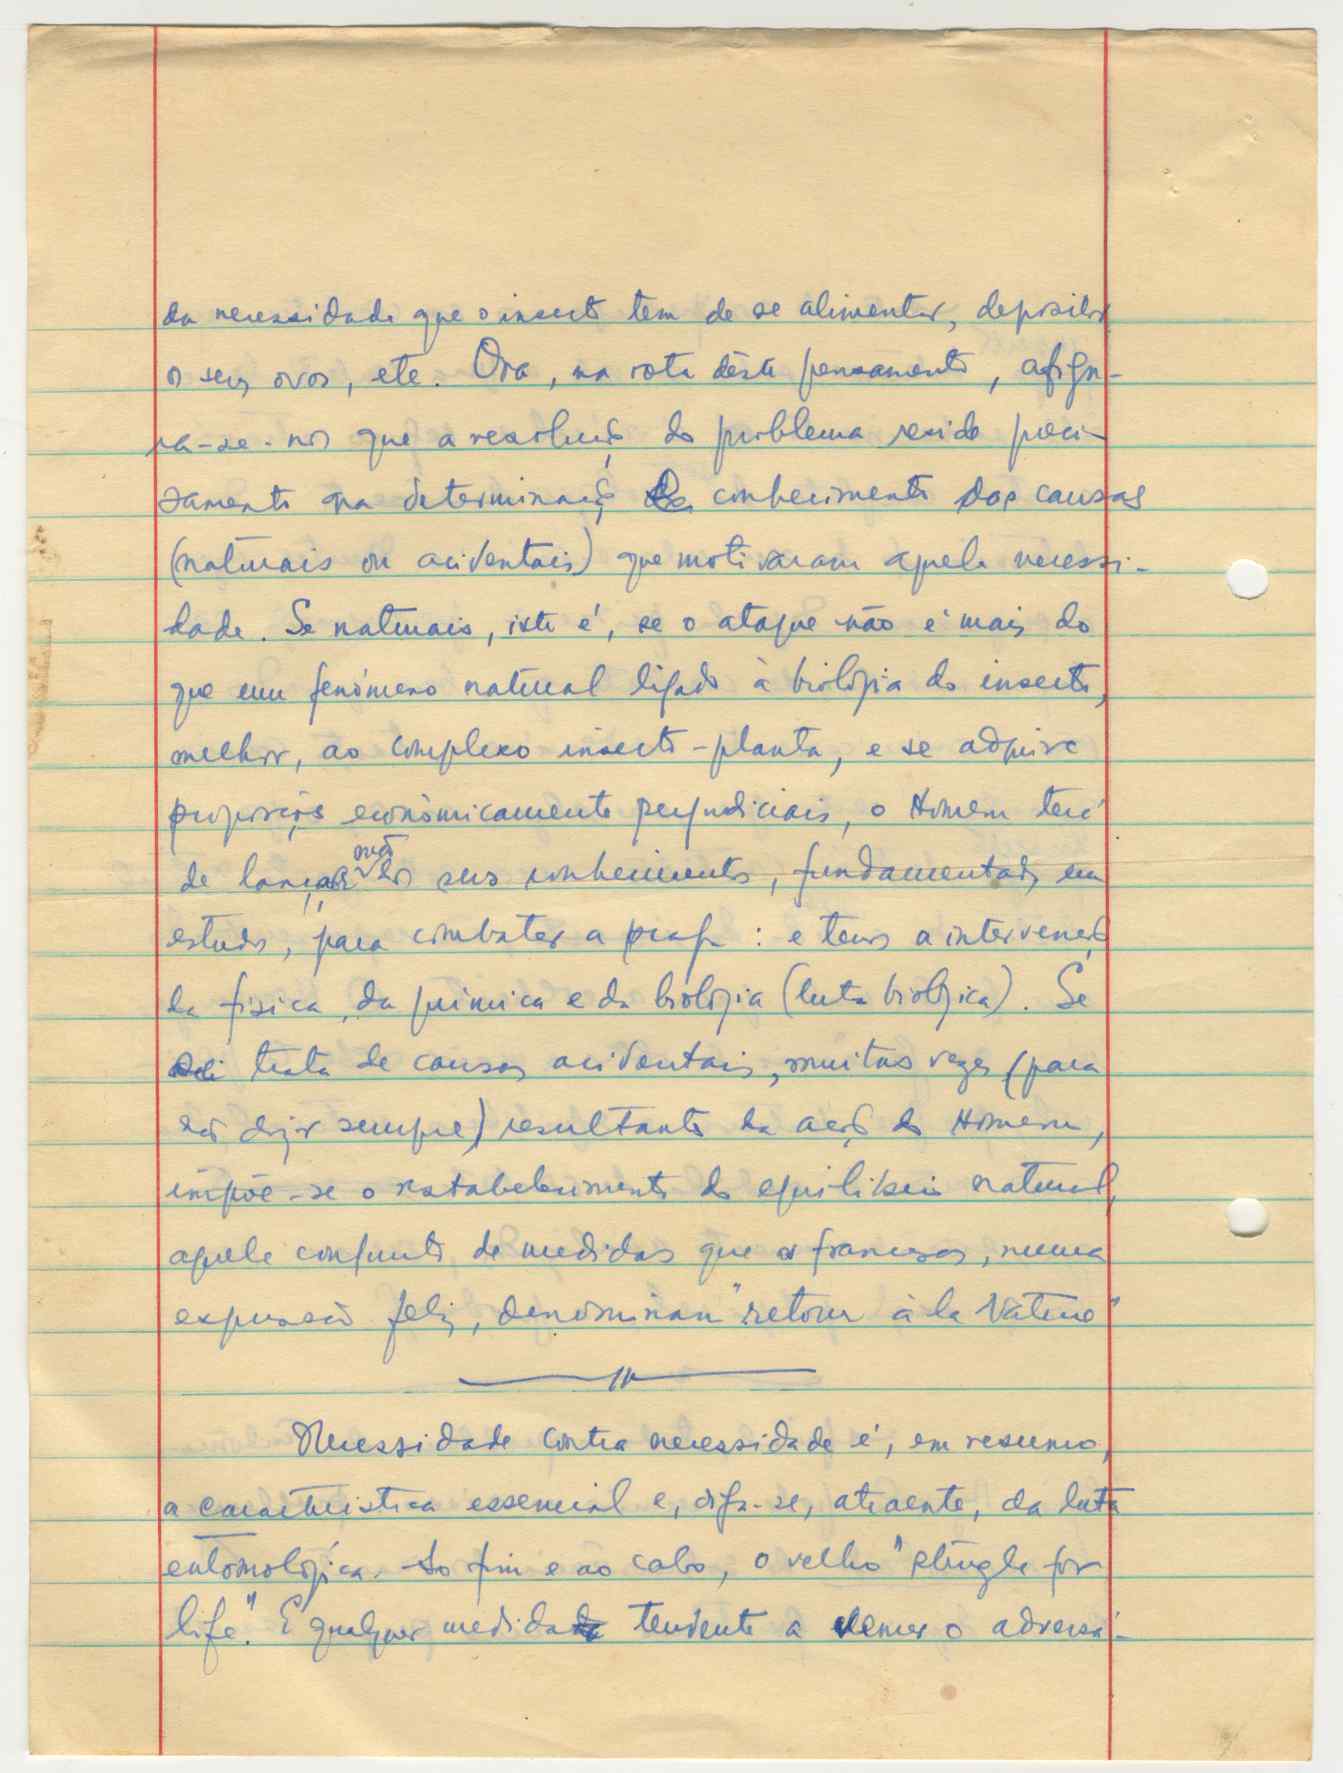 da necessidade que o insecto tem de se alimentar, depositar
os seus ovos, etc. Ora, na rota dêste pensamento, afigu-
ra-se-nos que a resolução do problema reside preci-
samente na determinação conhecimento das causas
(naturais ou acidentais) que motivaram aquela necessi-
dade. Se naturais, isto é, se o ataque não é mais do
que um fenómeno natural ligado à biologia do insecto,
melhor, ao complexo insecto-planta, e se adquire
proporções econòmicamente perjudiciais, o Homem terá
de lançar mão dos seus conhecimentos, fundamentados em
estudos, para combater a praga: e temos a intervenção
da física, da química e da biologia (luta biológica). Se
se trata de causas acidentais, muitas vezes (para
não dizer sempre) resultantes da acção do Homem,
impõe-se o restabelecimento do equilíbrio natural,
aquele conjunto de medidas que os franceses, numa
expressão feliz, denominam "retour à la Nature"
Necessidade contra necessidade é, em resumo,
a característica essencial e, diga-se, atraente, da luta
entomológica. Ao fim e ao cabo, o velho "strugle for
life". E qualquer medida tendente a vencer o adversá-